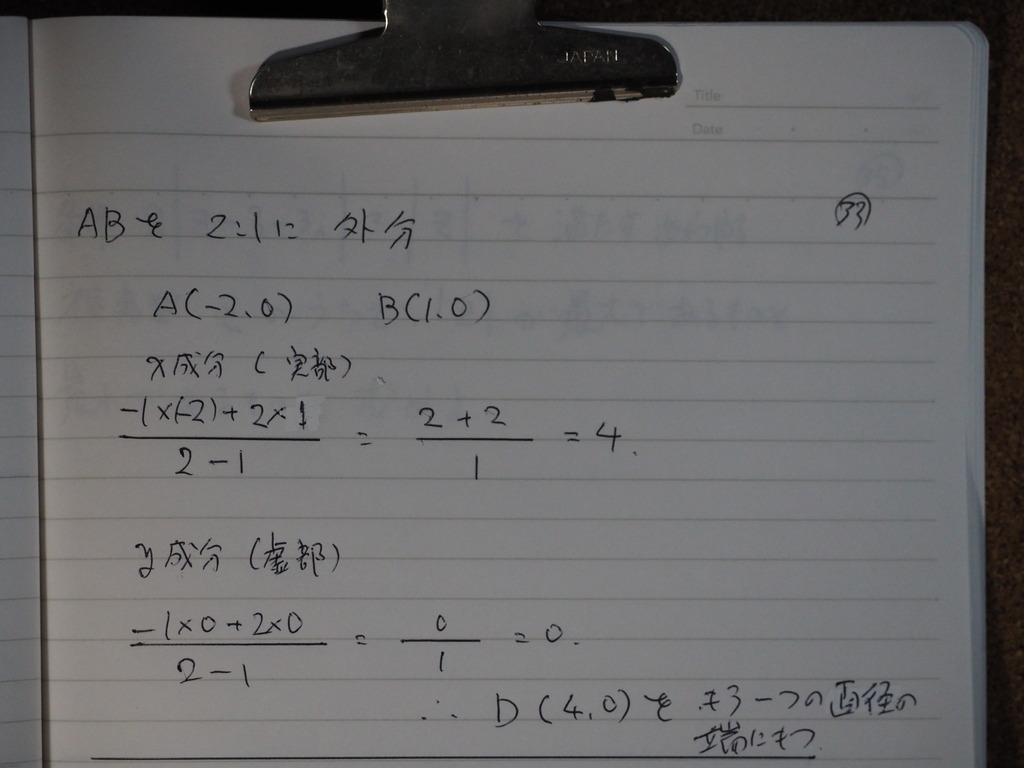 JAPAN
Title
Date
33
ABを 2:1に 外分
A(-2,0) B(1,0)
x成分(実部)
-1×(-2)+2×1 / 2-1 = 2+2 / 1 = 4.
y成分(虚部)
-1×0+2×0 / 2-1 = 0 / 1 = 0.
∴ D(4,0)を もう一つの直径の
端にもつ.